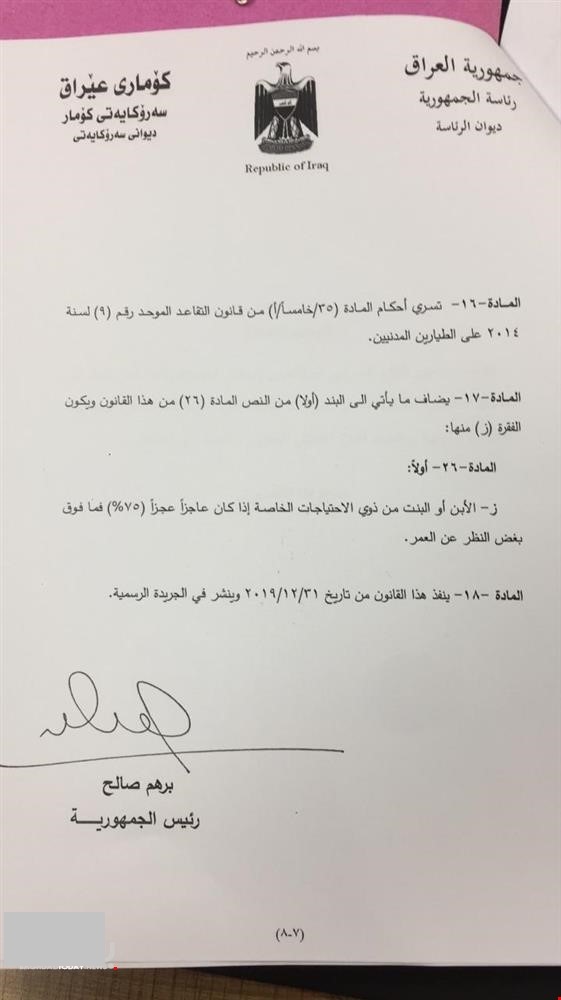 بسم الله الرحمن الرحيم
جمهورية العراق
رئاسة الجمهورية
ديوان الرئاسة
كۆماری عێراق
سەرۆکایەتی کۆمار
دیوانی سەرۆکایەتی
Republic of Iraq
المادة-١٦- تسري أحكام المادة (٣٥/خامساً/أ) من قانون التقاعد الموحد رقم (٩) لسنة
٢٠١٤ على الطيارين المدنيين.
المادة-١٧- يضاف ما يأتي الى البند (أولا) من النص المادة (٢٦) من هذا القانون ويكون
الفقرة (ز) منها:
المادة-٢٦- أولاً:
ز- الأبن أو البنت من ذوي الاحتياجات الخاصة إذا كان عاجزاً عجزاً (٧٥%) فما فوق
بغض النظر عن العمر.
المادة -١٨- ينفذ هذا القانون من تاريخ ٢٠١٩/١٢/٣١ وينشر في الجريدة الرسمية.
برهم صالح
رئيس الجمهوريـــة
(٧-٨)
TODAY NEWS